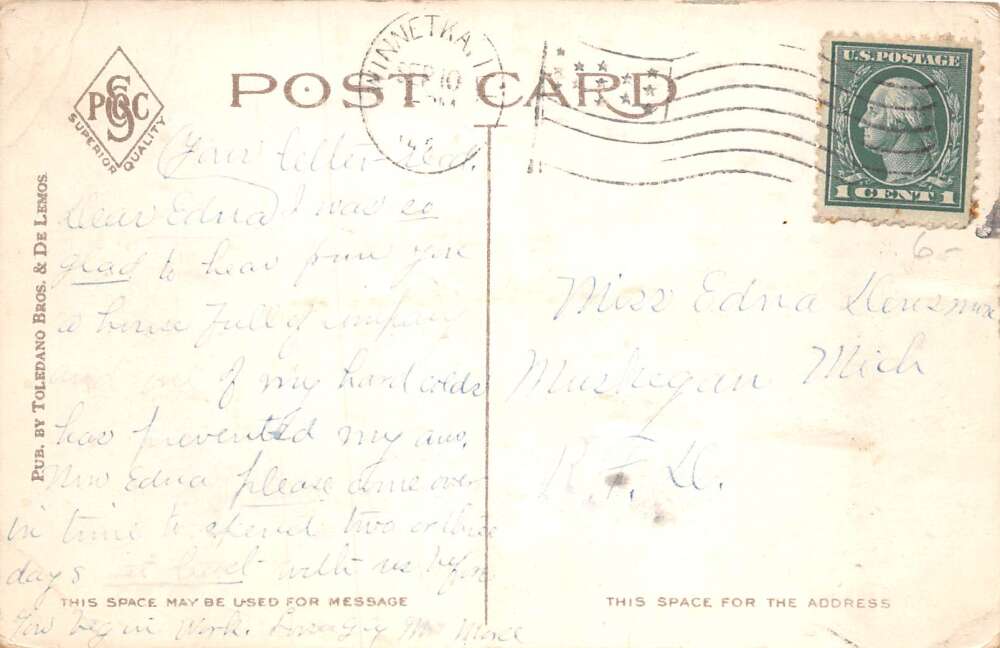 POST CARD
PSOC
SUPERIOR QUALITY
PUB. BY TOLEDANO BROS. & DE LEMOS.
WINNETKA, I
SEP 10
U.S. POSTAGE
1 CENT 1
6-
Your letter recd.
Dear Edna I was so
glad to hear from you
a house full of company
and one of my hard colds
has prevented my ans.
Now Edna please come over
in time to spend two or three
days at least with us before
THIS SPACE MAY BE USED FOR MESSAGE
You begin work. Lovingly M
Miss Edna Densmore
Muskegan Mich
R. F. D.
THIS SPACE FOR THE ADDRESS